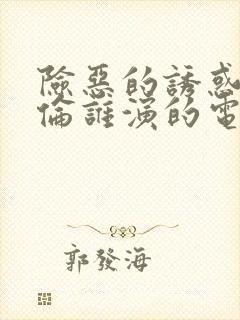 險惡的誘惑
倫誰演的電
郭發海